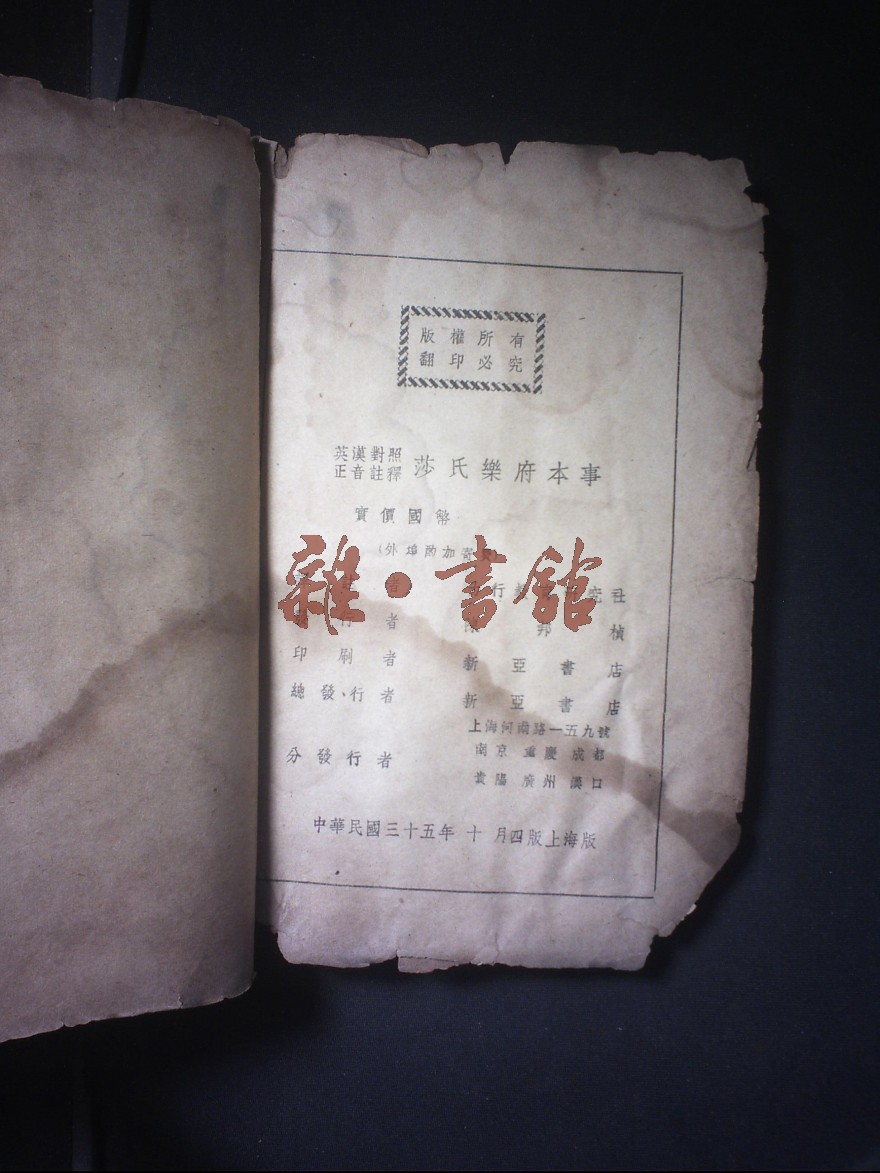 版權所有
翻印必究
英漢對照
正音註釋 莎氏樂府本事
實價國幣
(外埠酌加寄
雜·書館
者 行 究社
行者 邦楨
印刷者 新亞書店
總發行者 新亞書店
上海河南路一五九號
分發行者 南京 重慶 成都
貴陽 廣州 漢口
中華民國三十五年十月四版上海版